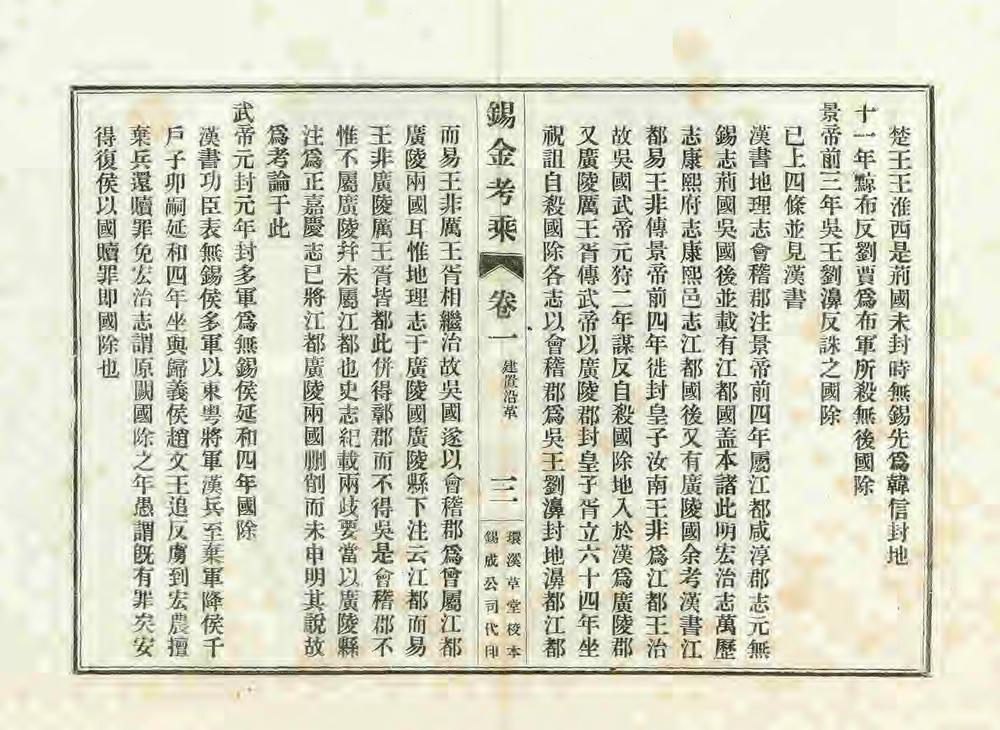 楚王王淮西是荊國未封時無錫先爲韓信封地
十一年黥布反劉賈爲布軍所殺無後國除
景帝前三年吳王劉濞反誅之國除
已上四條並見漢書
漢書地理志會稽郡注景帝前四年屬江都咸淳郡志元無
錫志荊國吳國後並載有江都國盖本諸此明宏治志萬歷
志康熙府志康熙邑志江都國後又有廣陵國余考漢書江
都易王非傳景帝前四年徙封皇子汝南王非爲江都王治
故吳國武帝元狩二年謀反自殺國除地入於漢爲廣陵郡
又廣陵厲王胥傳武帝以廣陵郡封皇子胥立六十四年坐
祝詛自殺國除各志以會稽郡爲吳王劉濞封地濞都江都
錫金考乘
卷一
建置沿革
三
環溪草堂校本
錫成公司代印
而易王非厲王胥相繼治故吳國遂以會稽郡爲曾屬江都
廣陵兩國耳惟地理志于廣陵國廣陵縣下注云江都而易
王非廣陵厲王胥皆都此併得鄣郡而不得吳是會稽郡不
惟不屬廣陵并未屬江都也史志紀載兩歧要當以廣陵縣
注爲正嘉慶志已將江都廣陵兩國刪削而未申明其說故
爲考論于此
武帝元封元年封多軍爲無錫侯延和四年國除
漢書功臣表無錫侯多軍以東粵將軍漢兵至棄軍降侯千
戶子卯嗣延和四年坐與歸義侯趙文王追反虜到宏農擅
棄兵還贖罪免宏治志謂原闕國除之年愚謂旣有罪矣安
得復侯以國贖罪即國除也